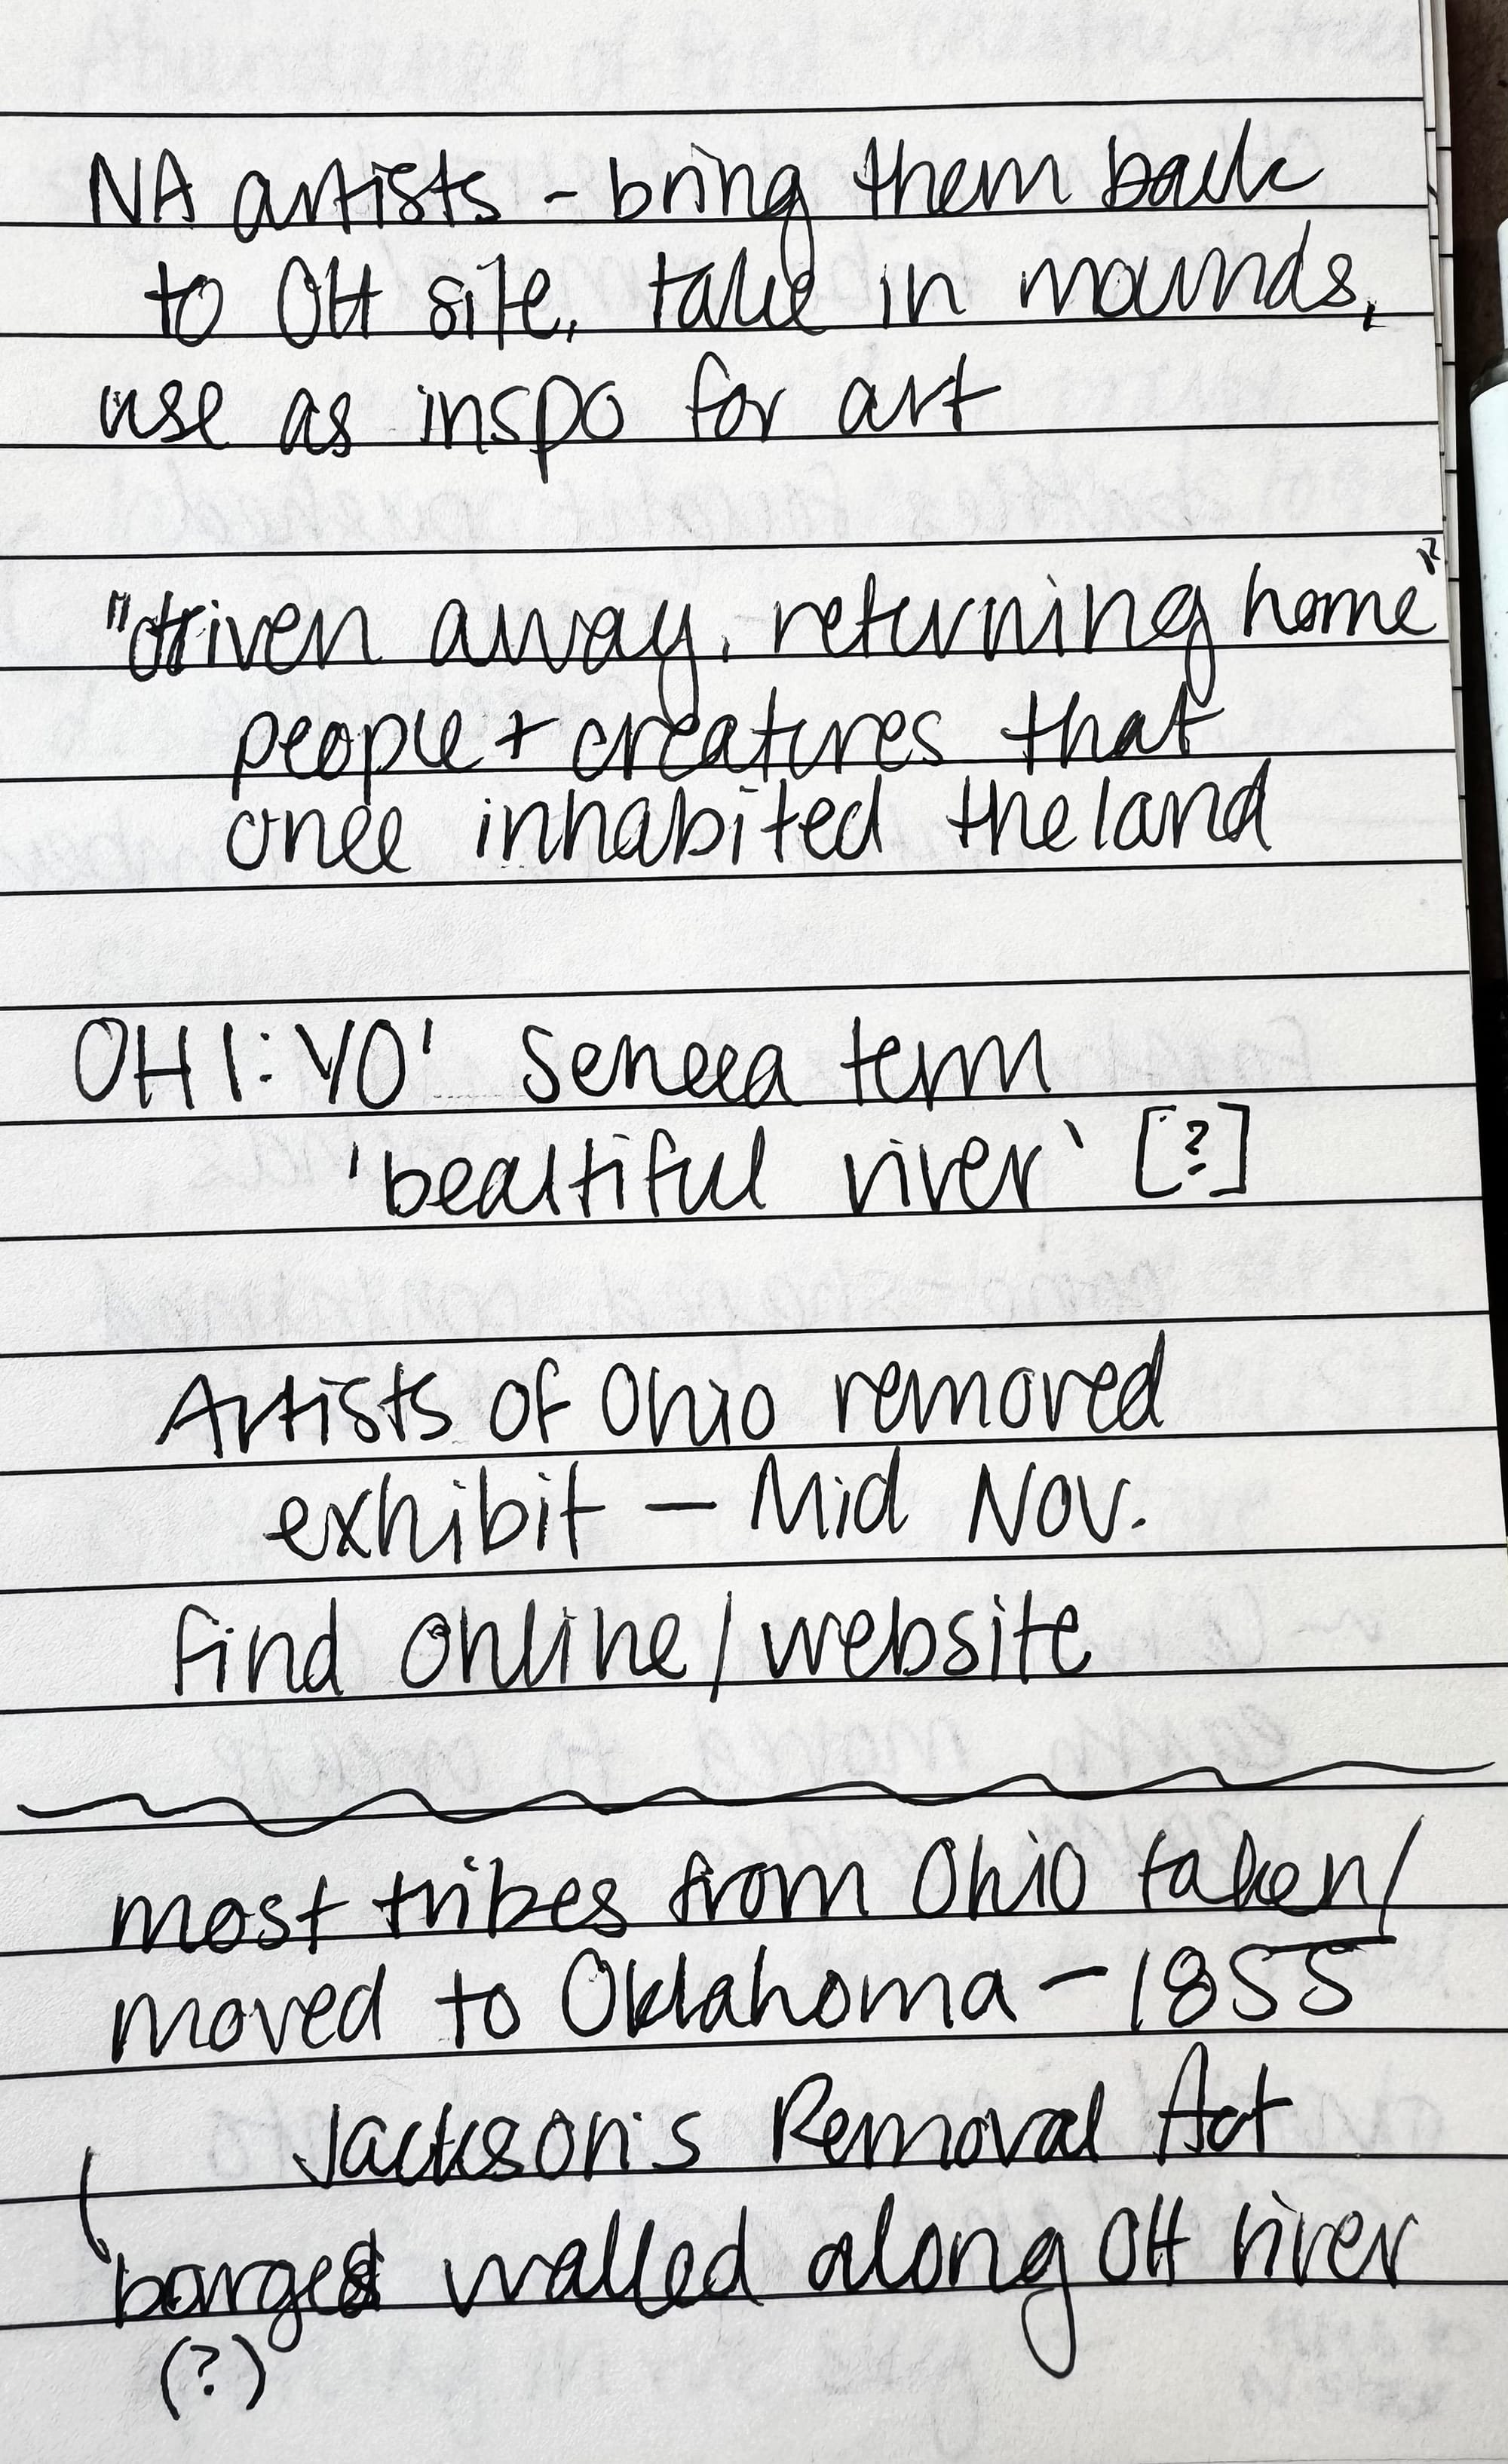 NA artists - bring them back
to OH site, take in mounds,
use as inspo for art
"driven away, returning home"
people + creatures that
once inhabited the land
OHI:YO' Seneca term
'beautiful river' [?]
Artists of Ohio removed
exhibit — Mid Nov.
find online/website
most tribes from Ohio taken/
moved to Oklahoma — 1855
Jackson's Removal Act
barges walked along OH river
(?)